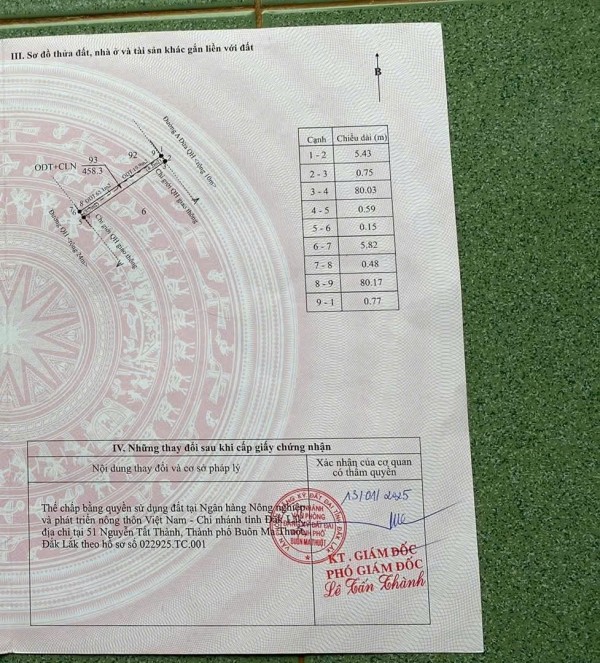 III. Sơ đồ thửa đất, nhà ở và tài sản khác gắn liền với đất
B
Đường A Dừa QH rộng 10m
ODT+CLN 93
458.3
92
9 1
2
Chỉ giới QH giao thông
A
8
6
Đường QH rộng 24m
Chỉ giới QH giao thông
A'
Cạnh Chiều dài (m)
1 - 2 5.43
2 - 3 0.75
3 - 4 80.03
4 - 5 0.59
5 - 6 0.15
6 - 7 5.82
7 - 8 0.48
8 - 9 80.17
9 - 1 0.77
IV. Những thay đổi sau khi cấp giấy chứng nhận
Nội dung thay đổi và cơ sở pháp lý
Xác nhận của cơ quan
có thẩm quyền
Thế chấp bằng quyền sử dụng đất tại Ngân hàng Nông nghiệp
và phát triển nông thôn Việt Nam - Chi nhánh tỉnh Đắk Lắk
địa chỉ tại 51 Nguyễn Tất Thành, Thành phố Buôn Ma Thuột,
Đắk Lắk theo hồ sơ số 022925.TC.001
13/01/2025
CHI NHÁNH
VĂN PHÒNG
ĐĂNG KÝ ĐẤT ĐAI
THÀNH PHỐ
BUÔN MA THUỘT
KT. GIÁM ĐỐC
PHÓ GIÁM ĐỐC
Lê Tấn Thành